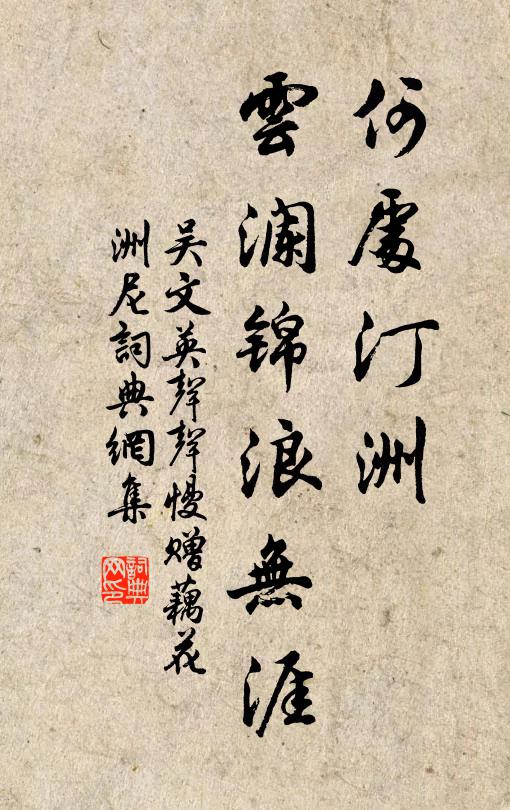 何處汀洲
雲瀾錦浪無涯
吴文英聲聲慢贈藕花
洲尼詞典網集
詞典
网印